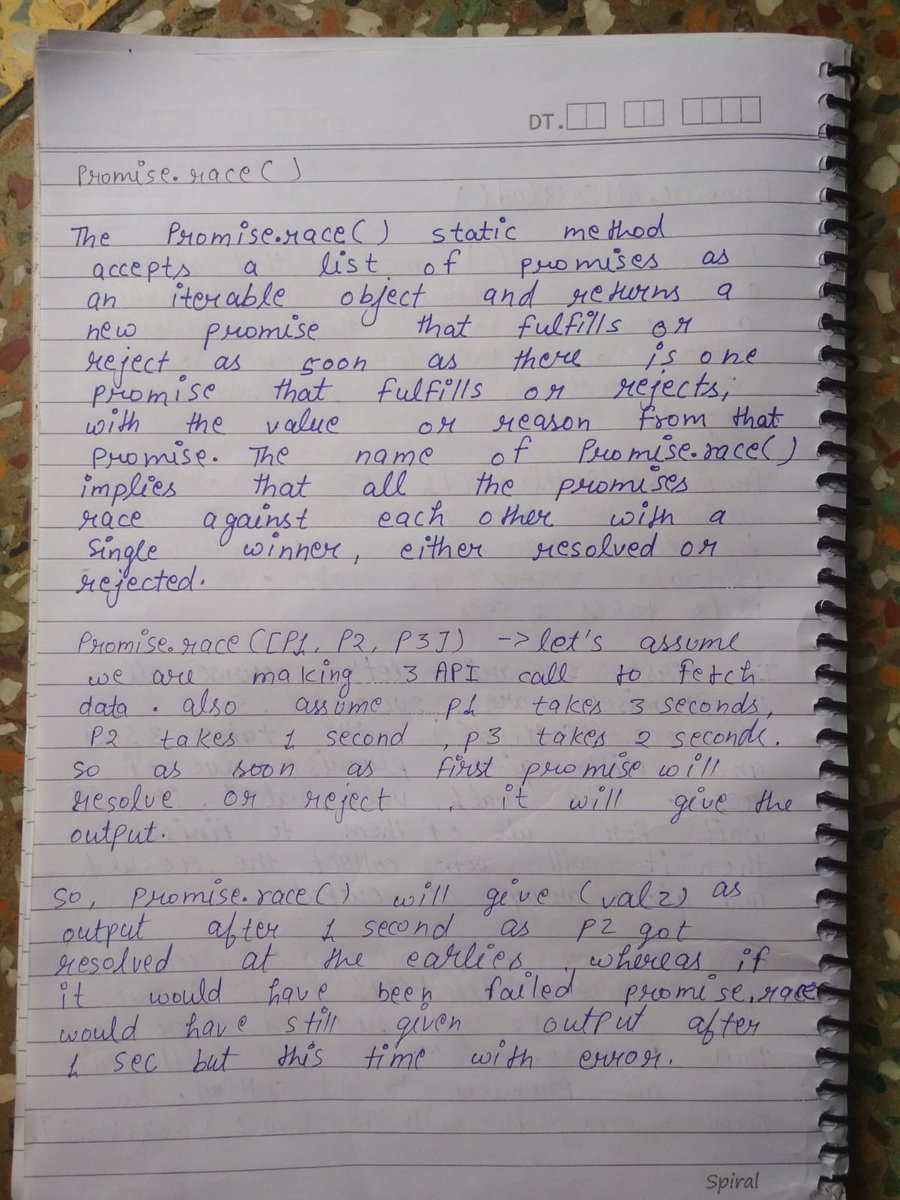 DT.
Promise.race()
The Promise.race() static method
accepts a list of promises as
an iterable object and returns a
new promise that fulfills or
reject as soon as there is one
promise that fulfills or rejects,
with the value or reason from that
promise. The name of Promise.race()
implies that all the promises
race against each other with a
single winner, either resolved or
rejected.
Promise.race([P1, P2, P3]) -> let's assume
we are making 3 API call to fetch
data. also assume P1 takes 3 seconds,
P2 takes 1 second, p3 takes 2 seconds.
so as soon as first promise will
resolve or reject, it will give the
output.
So, promise.race() will give (val2) as
output after 1 second as P2 got
resolved at the earlies, whereas if
it would have been failed promise.race
would have still given output after
1 sec but this time with error.
Spiral